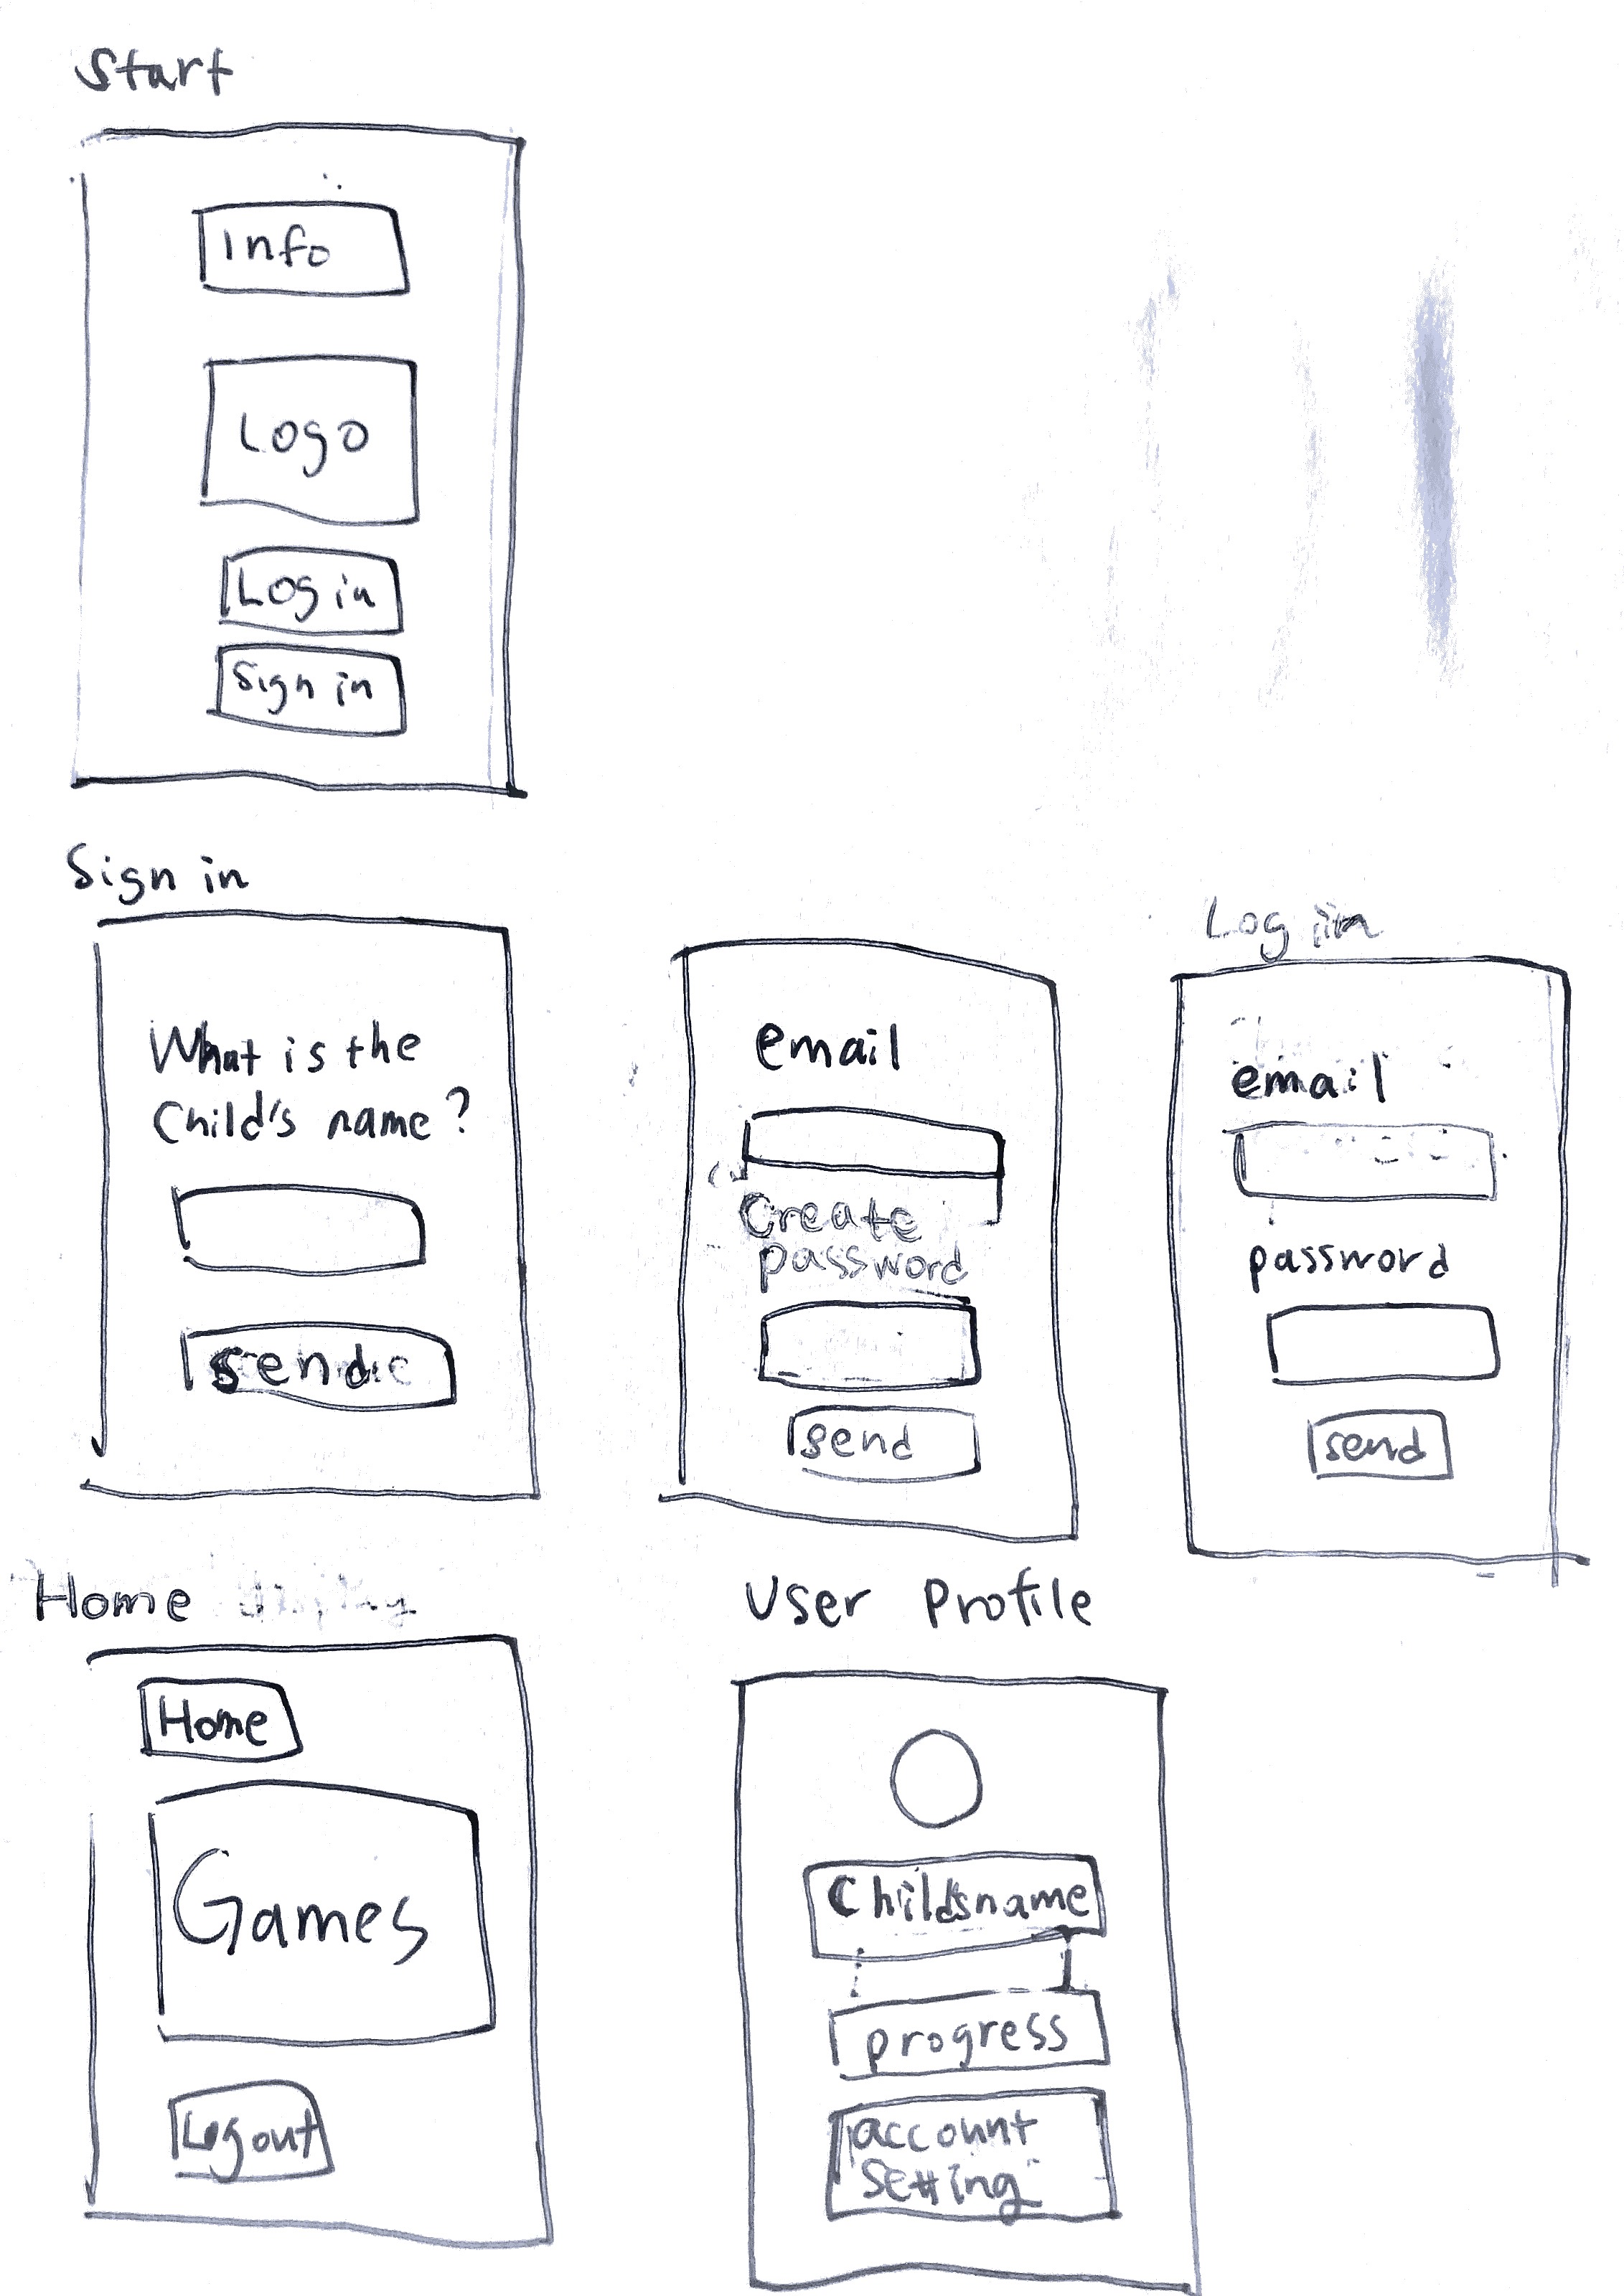 Start
Info
Logo
Log in
Sign in
Sign in
What is the
Child's name?
send
email
Create
password
send
Log in
email
password
send
Home
Home
Games
Logout
User Profile
Child's name
progress
account
setting